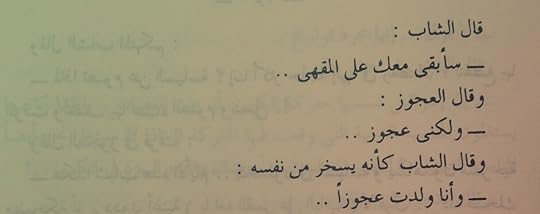 قال الشاب :
ـــ سأبقى معك على المقهى ..
وقال العجوز :
ـــ ولكنى عجوز ..
وقال الشاب كأنه يسخر من نفسه :
ـــ وأنا ولدت عجوزاً ..